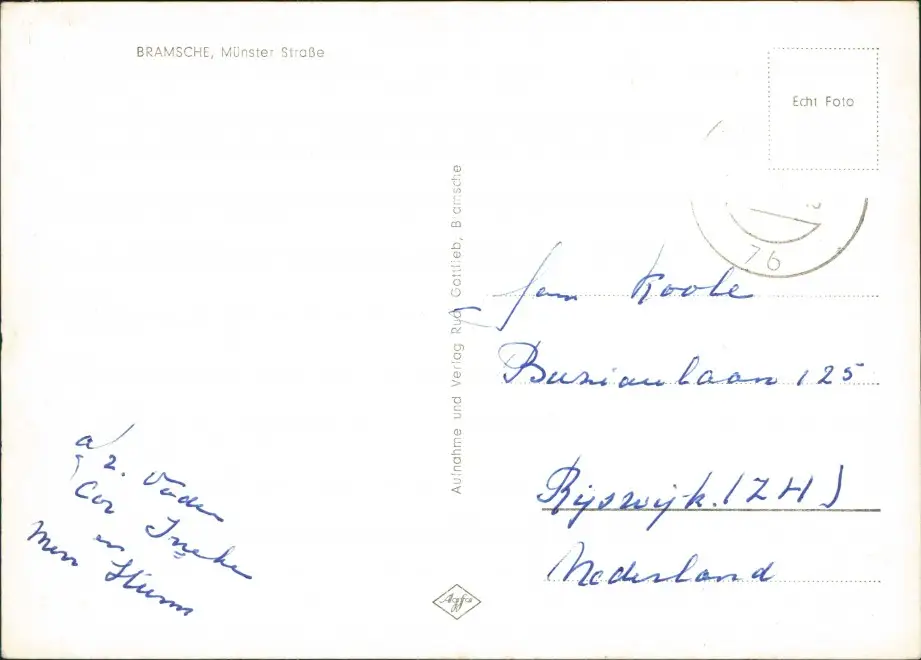 BRAMSCHE, Münster Straße
Echt Foto
76
Aufnahme und Verlag Rud. Gottlieb, Bramsche
Jan Koole
Burziaulaan 125
Rijswijk. (ZH)
Nederland
a/z. Vader
Cor Ineke
en
Agfa